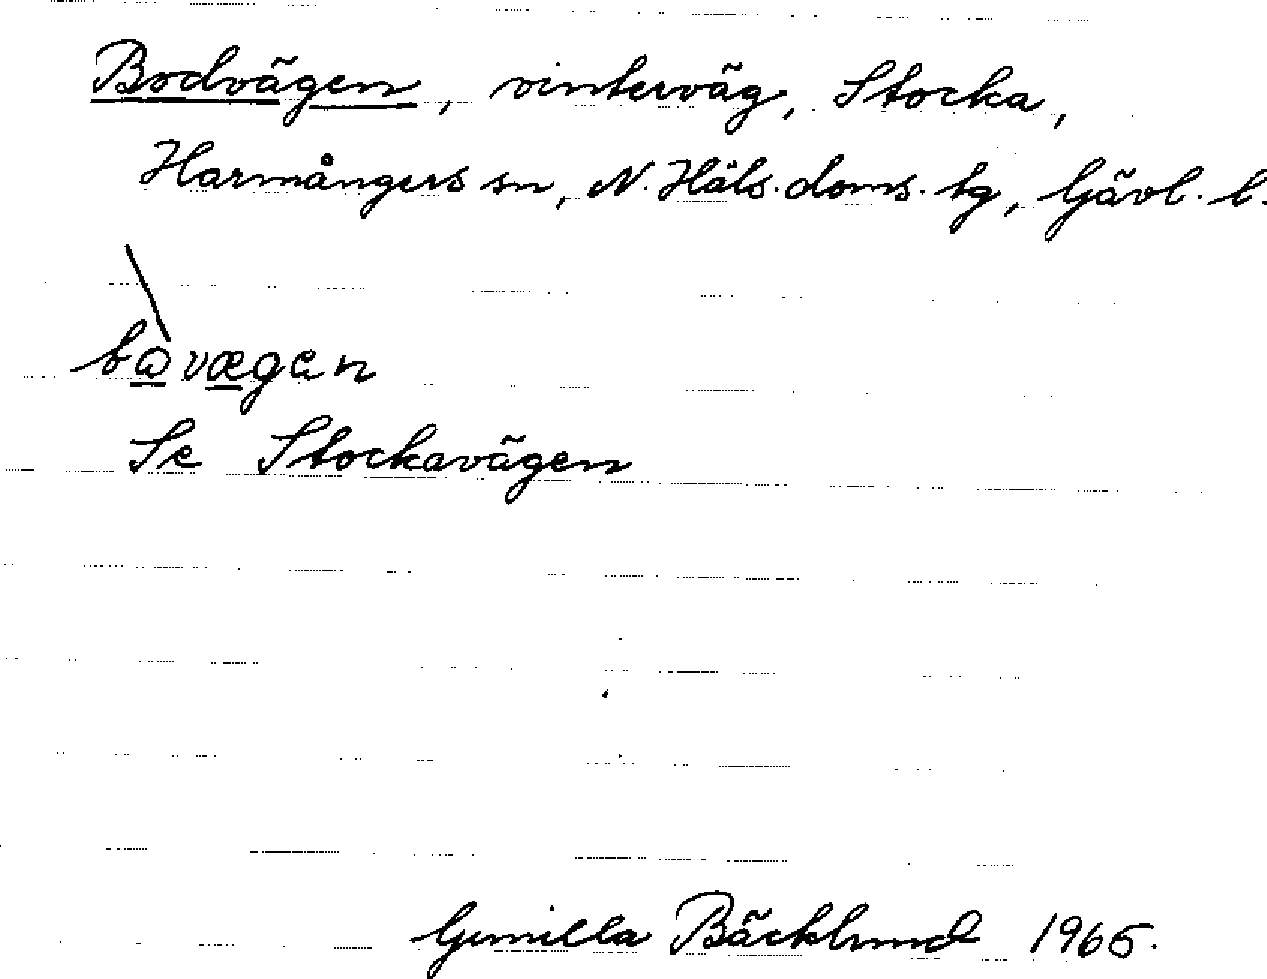 Bodvägen, vinterväg, Stocka,
Harmångers sn, N. Häls. doms. tg, Gävl. l.
bɷvægen
Se Stockavägen
Gunilla Bäcklund 1965.